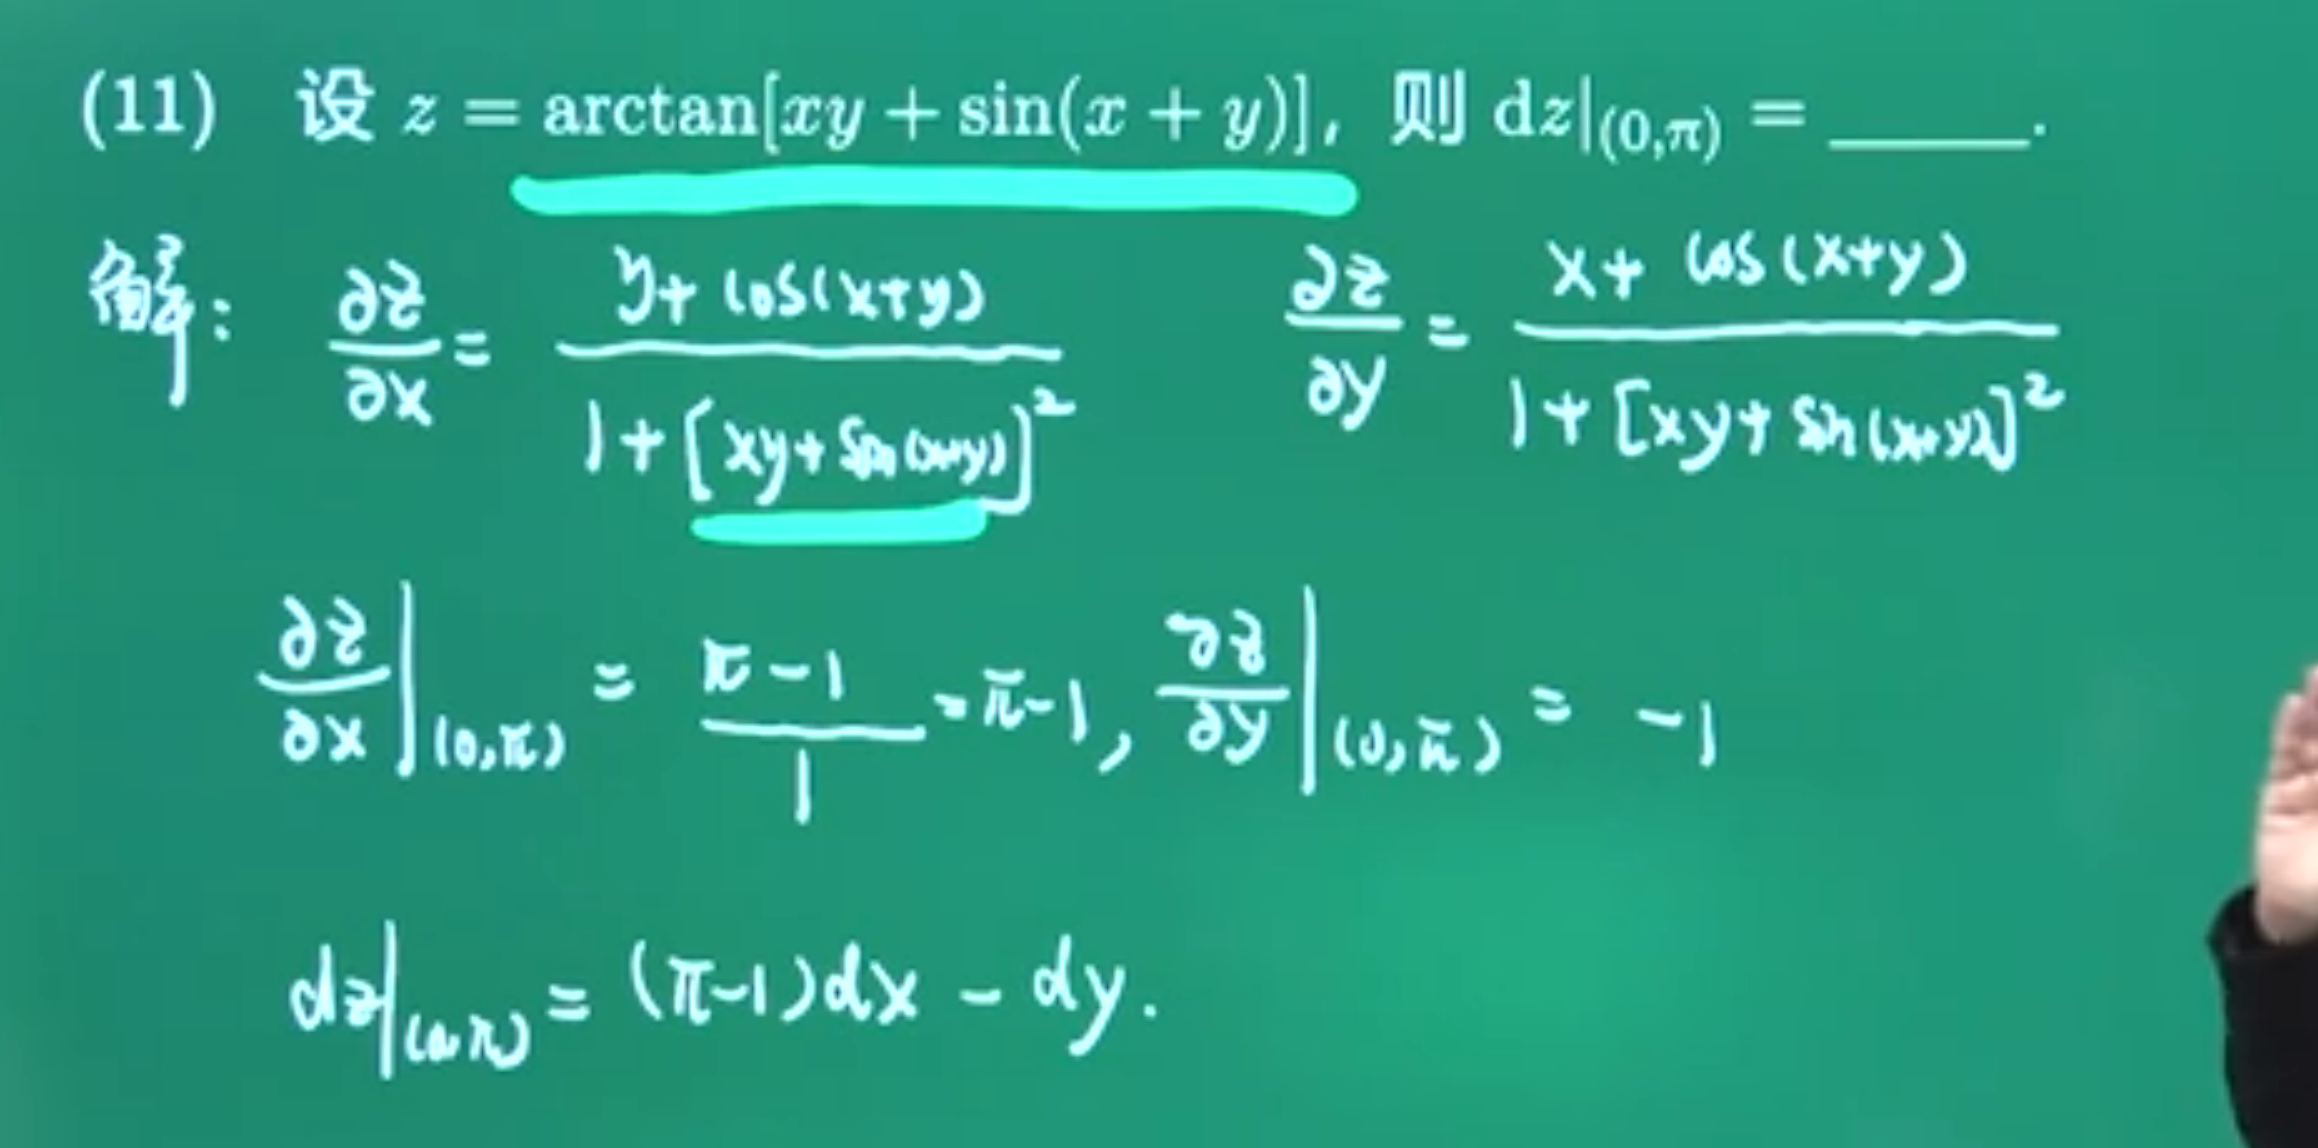 (11) 设 z = arctan[xy + sin(x + y)], 则 dz|(0,π) = ____.
解: ∂z/∂x = (y + cos(x+y)) / (1 + [xy + sin(x+y)]²)  ∂z/∂y = (x + cos(x+y)) / (1 + [xy + sin(x+y)]²)
∂z/∂x|(0,π) = (π - 1)/1 = π - 1, ∂z/∂y|(0,π) = -1
dz|(0,π) = (π-1)dx - dy.